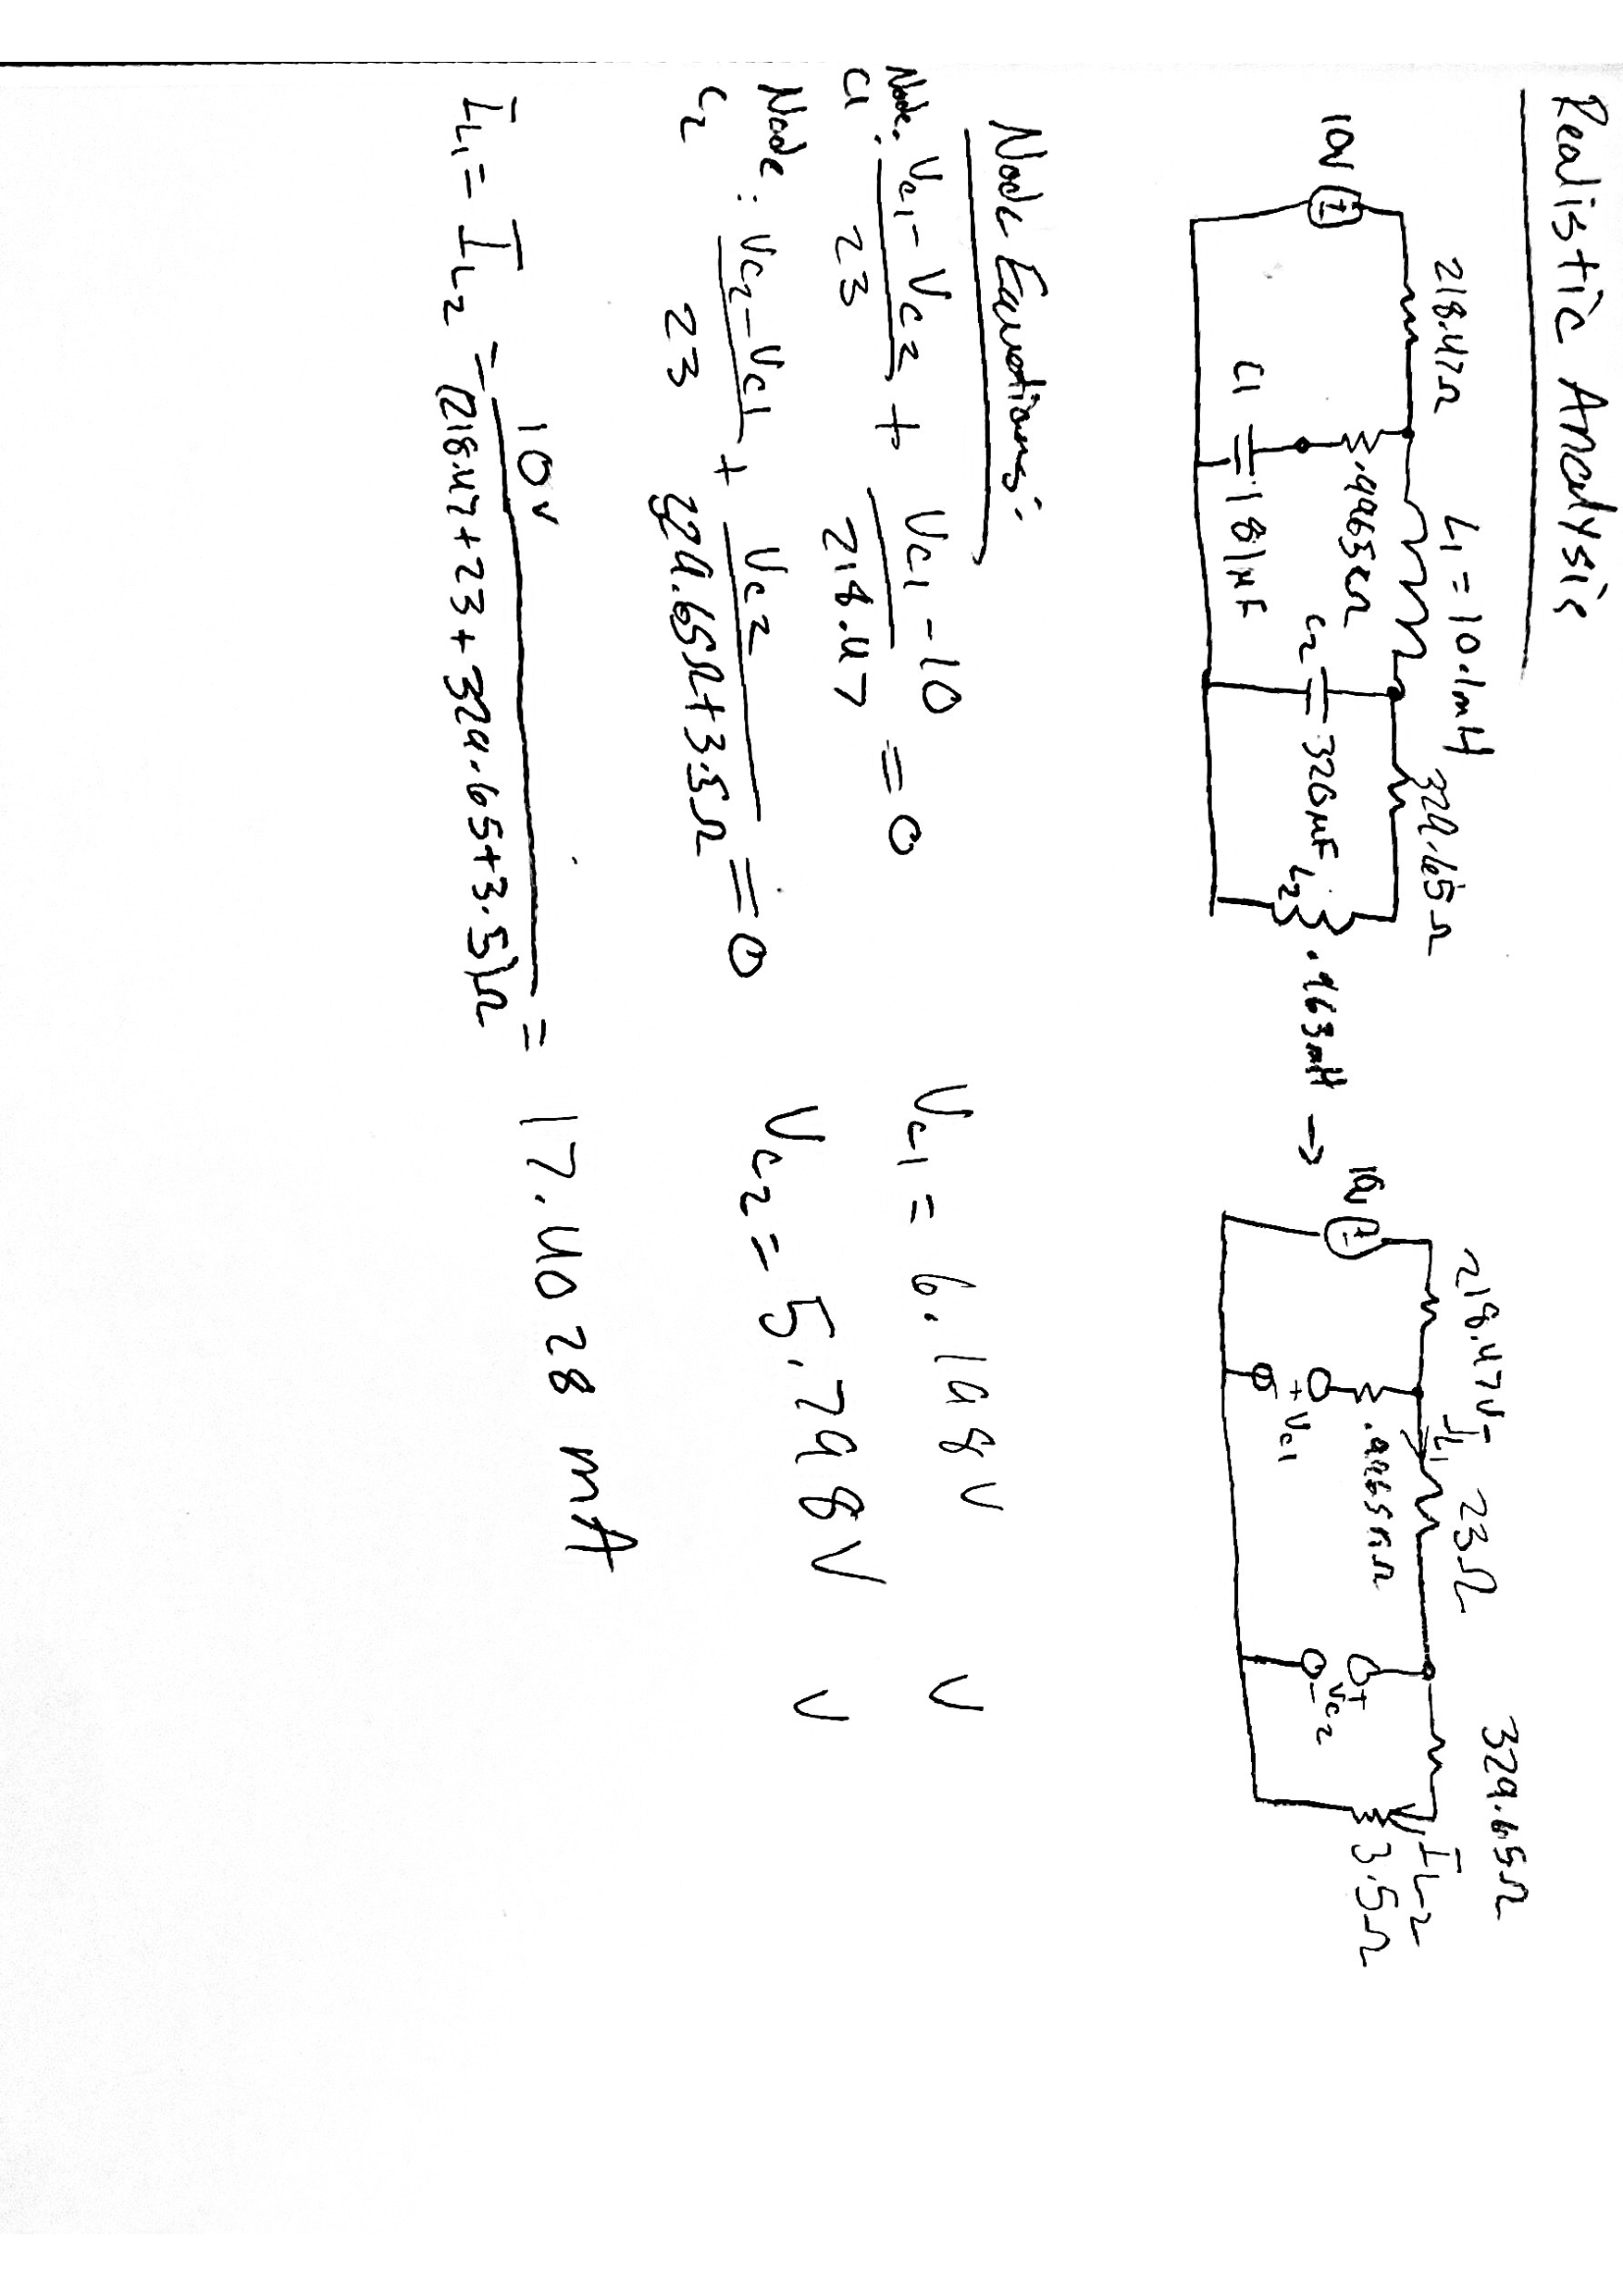 Realistic Analysis
10V 218.47Ω L1 = 10.1mH 329.65Ω
.9965KΩ
C1 181µF C2 326µF L2 .963mH →
10V 218.47Ω IL1 23Ω 329.65Ω
.9965KΩ
+ Vc1 - + Vc2 - IL2 3.5Ω
Node Equations:
Node C1: (Vc1 - Vc2)/23 + (Vc1 - 10)/218.47 = 0 Vc1 = 6.198V V
Node C2: (Vc2 - Vc1)/23 + Vc2/(329.65Ω + 3.5Ω) = 0 Vc2 = 5.798V V
IL1 = IL2 = 10v/(218.47 + 23 + 329.65 + 3.5)Ω = 17.4028 mA